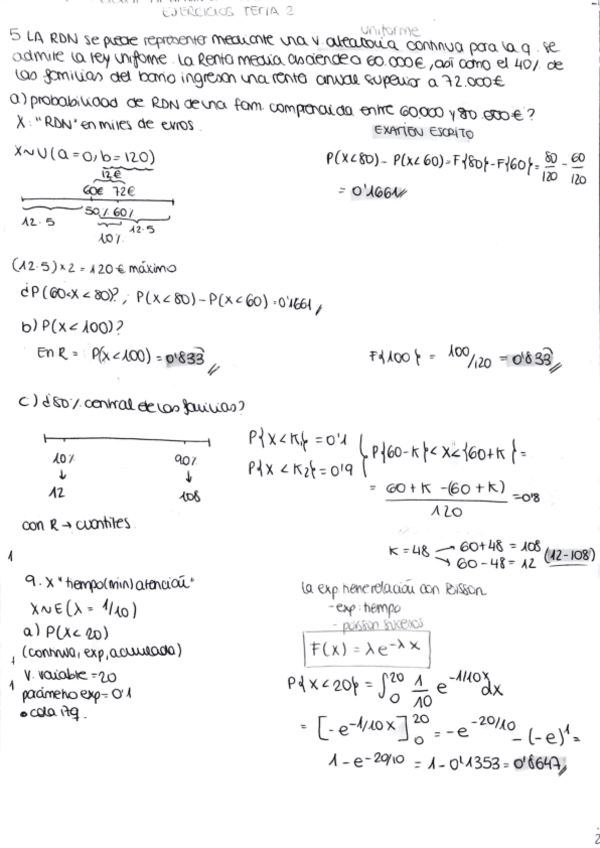 EJERCICIOS TEMA 2
uniforme
5 LA RDN se puede representar mediante una v aleatoria continua para la q. se
admite la ley uniforme. La Renta media asciende a 60.000€, así como el 40% de
las familias del barrio ingresan una renta anual superior a 72.000€
a) probabilidad de RDN de una fam. comprendida entre 60.000 y 80.000€?
X: "RDN" en miles de euros.
EXAMEN ESCRITO
X~U(a=0, b=120)
P(X<80) - P(X<60) = F{80} - F{60} = 80/120 - 60/120
= 0'1661
12€
60€ 72€
50% 60%
12·5
12·5
10%
(12·5)x2 = 120€ máximo
¿P(60<X<80)?, P(X<80) - P(X<60) = 0'1661
b) P(X<100)?
En R = P(X<100) = 0'833
F{100} = 100/120 = 0'833
c) ¿80% central de las familias?
P{X<K1} = 0'1
P{X<K2} = 0'9
P{60-K}<X<{60+K} =
= 60+K-(60+K)/120 = 0'8
10%
90%
12
108
con R → cuantiles
K=48 → 60+48 = 108
→ 60-48 = 12
(12-108)
1
9. X "tiempo(min) atención"
X~E(λ = 1/10)
a) P(X<20)
(continua, exp, acumulada)
V. variable = 20
parámetro exp = 0'1
• cola izq.
La exp tiene relación con Poisson
- exp: tiempo
- poisson sucesos
F(x) = λe^-λx
P{X<20} = ∫₀²⁰ 1/10 e^-1/10x dx
= [-e^-1/10x]₀²⁰ = -e^-20/10 - (-e)¹ =
1 - e^-20/10 = 1 - 0'1353 = 0'8647
2